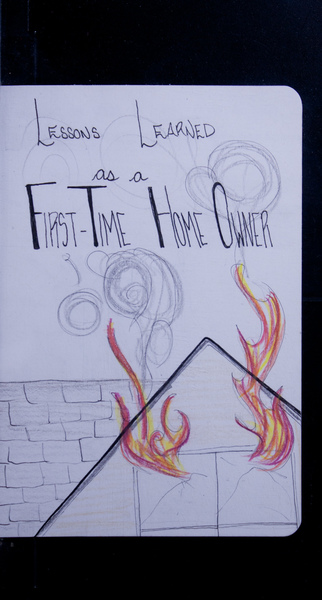 Lessons Learned
as a
First-Time Home Owner